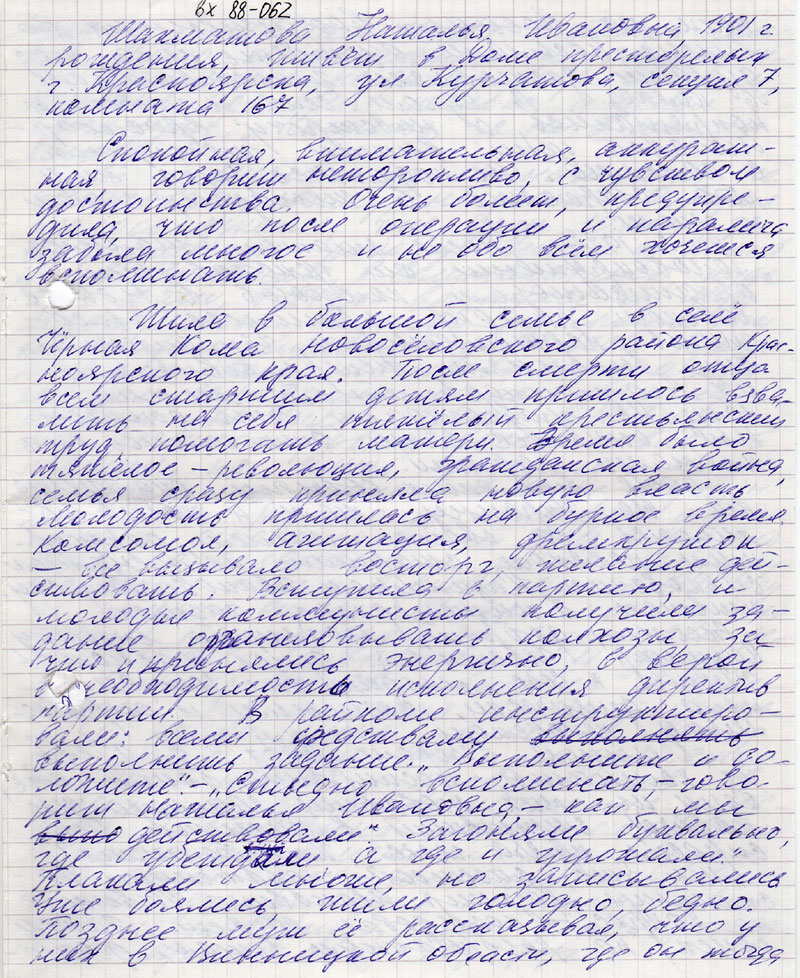 вх 88-062
Шахматова Наталья Ивановна, 1901 г.
рождения, живёт в Доме престарелых
г. Красноярска, ул. Курчатова, секция 7,
комната 167
Спокойная, внимательная, аккурат-
ная, говорит неторопливо, с чувством
достоинства. Очень болеет, предупре-
дила, что после операции и паралича
забыла многое и не обо всём хочется
вспоминать.
Жила в большой семье в селе
Чёрная Кома Новосёловского района Крас-
ноярского края. После смерти отца
всем старшим детям пришлось взва-
лить на себя тяжёлый крестьянский
труд, помогать матери. Время было
тяжёлое – революция, гражданская война,
семья сразу приняла новую власть
Молодость пришлась на бурное время.
Комсомол, агитация, драмкружок
– всё вызывало восторг, желание дей-
ствовать. Вступила в партию, и
молодые коммунисты получили за-
дание организовывать колхозы, за
что и принялись энергично, с верой
в необходимость исполнения директив
партии. В райкоме инструктиро-
вали: всеми средствами выполнять
выполнить задание. „Выполните и до-
ложите". – „Стыдно вспоминать, – гово-
рит Наталья Ивановна, – как мы
действовали" Загоняли буквально,
где убеждали а где и угрожали."
Плакали многие, но записывались
Уже боялись, жили голодно, бедно.
Позднее муж её рассказывал, что у
них в Винницкой области, где он тогда